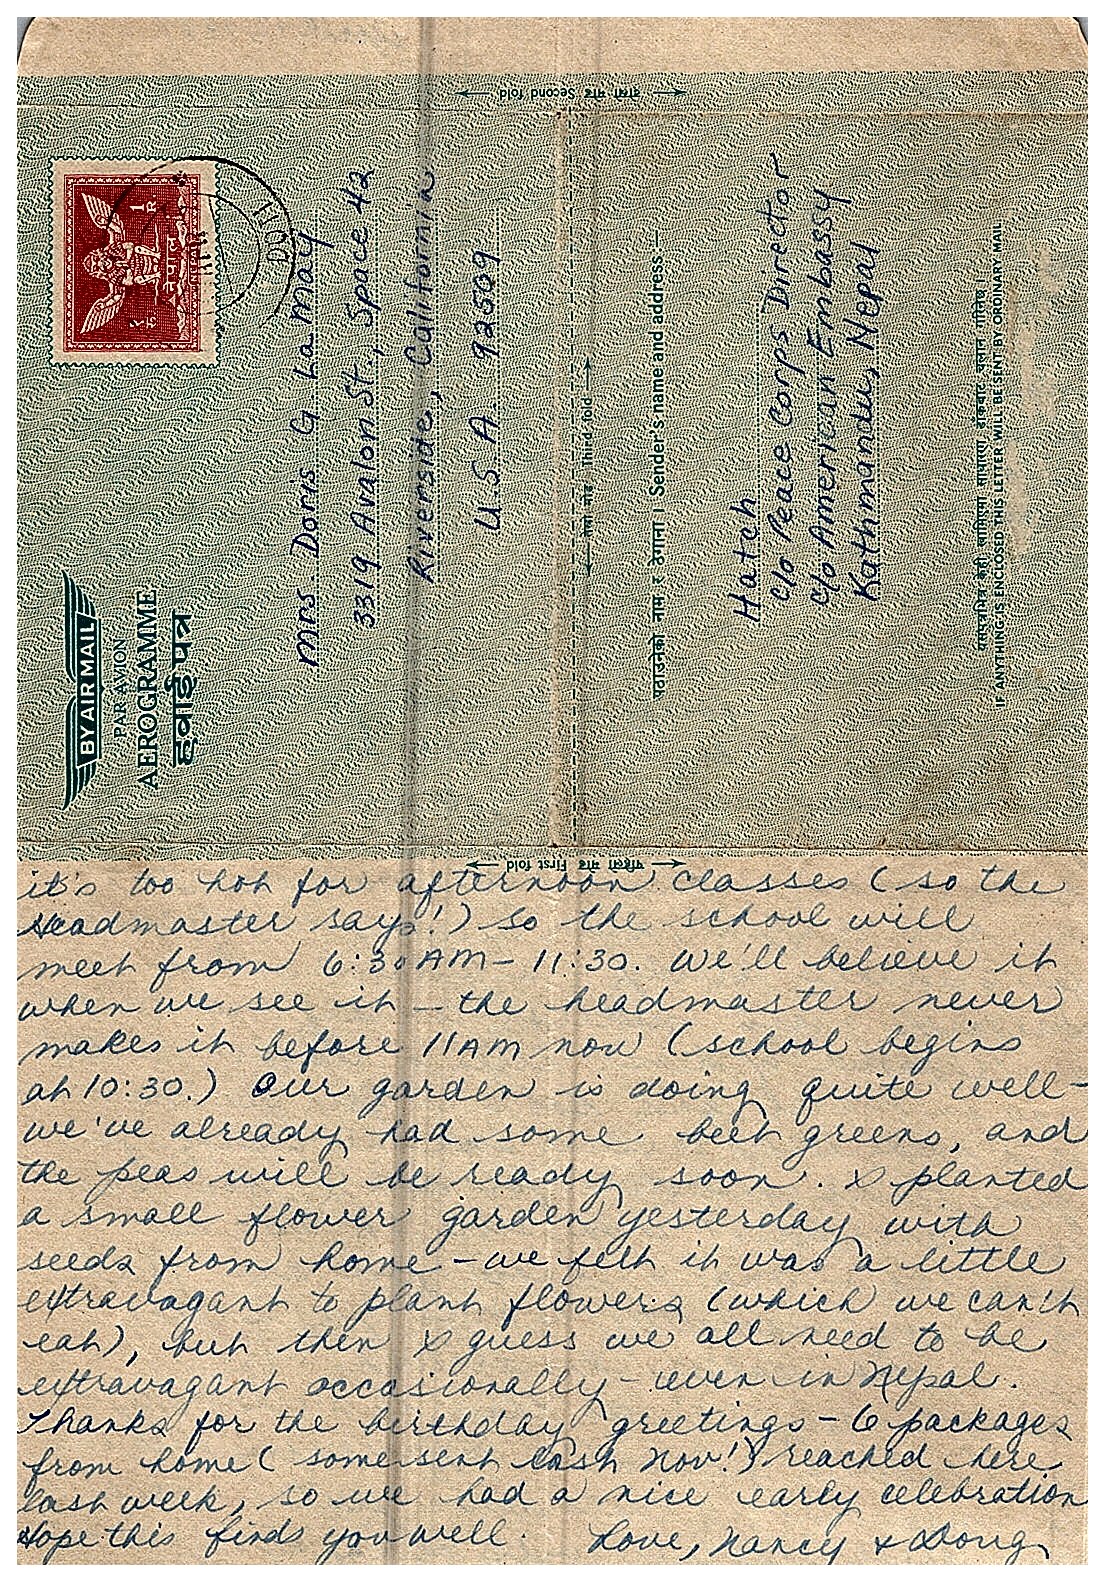 दोस्रो मोड Second fold
BY AIR MAIL
PAR AVION
AEROGRAMME
हवाई पत्र
१ रु
1 R
नेपाल
NEPAL
Mrs Doris G LaMay
3319 Avalon St., Space 42
Riverside, California
U.S.A. 92509
तेस्रो मोड Third fold
पठाउनेको नाम र ठेगाना । Sender's name and address
Hatch
c/o Peace Corps Director
c/o American Embassy
Kathmandu, Nepal
यस पत्रभित्र केही राखिएमा साधारण डाकबाट चलान गरिनेछ ।
IF ANYTHING IS ENCLOSED THIS LETTER WILL BE SENT BY ORDINARY MAIL
पहिलो मोड First fold
it's too hot for afternoon classes (so the
Headmaster says!) So the school will
meet from 6:30 AM – 11:30. We'll believe it
when we see it – the headmaster never
makes it before 11 AM now (school begins
at 10:30.) Our garden is doing quite well –
we've already had some beet greens, and
the peas will be ready soon. I planted
a small flower garden yesterday with
seeds from home – we felt it was a little
extravagant to plant flowers (which we can't
eat), but then I guess we all need to be
extravagant occasionally – even in Nepal.
Thanks for the birthday greetings – 6 packages
from home (some sent last Nov!) reached here
last week, so we had a nice early celebration
Hope this finds you well. Love, Nancy & Doug